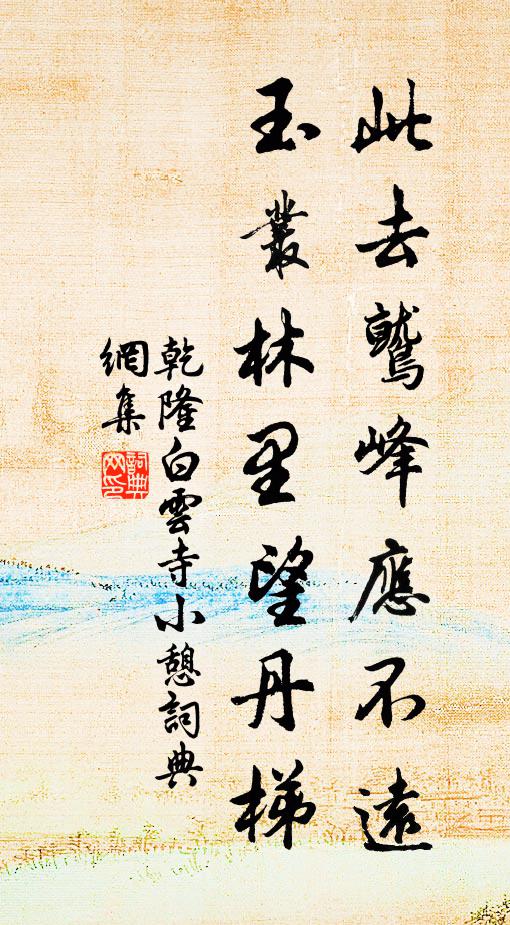 此去鷲峰應不遠
玉叢林里望丹梯
乾隆白雲寺小憩詞典
網集
詞典
网印